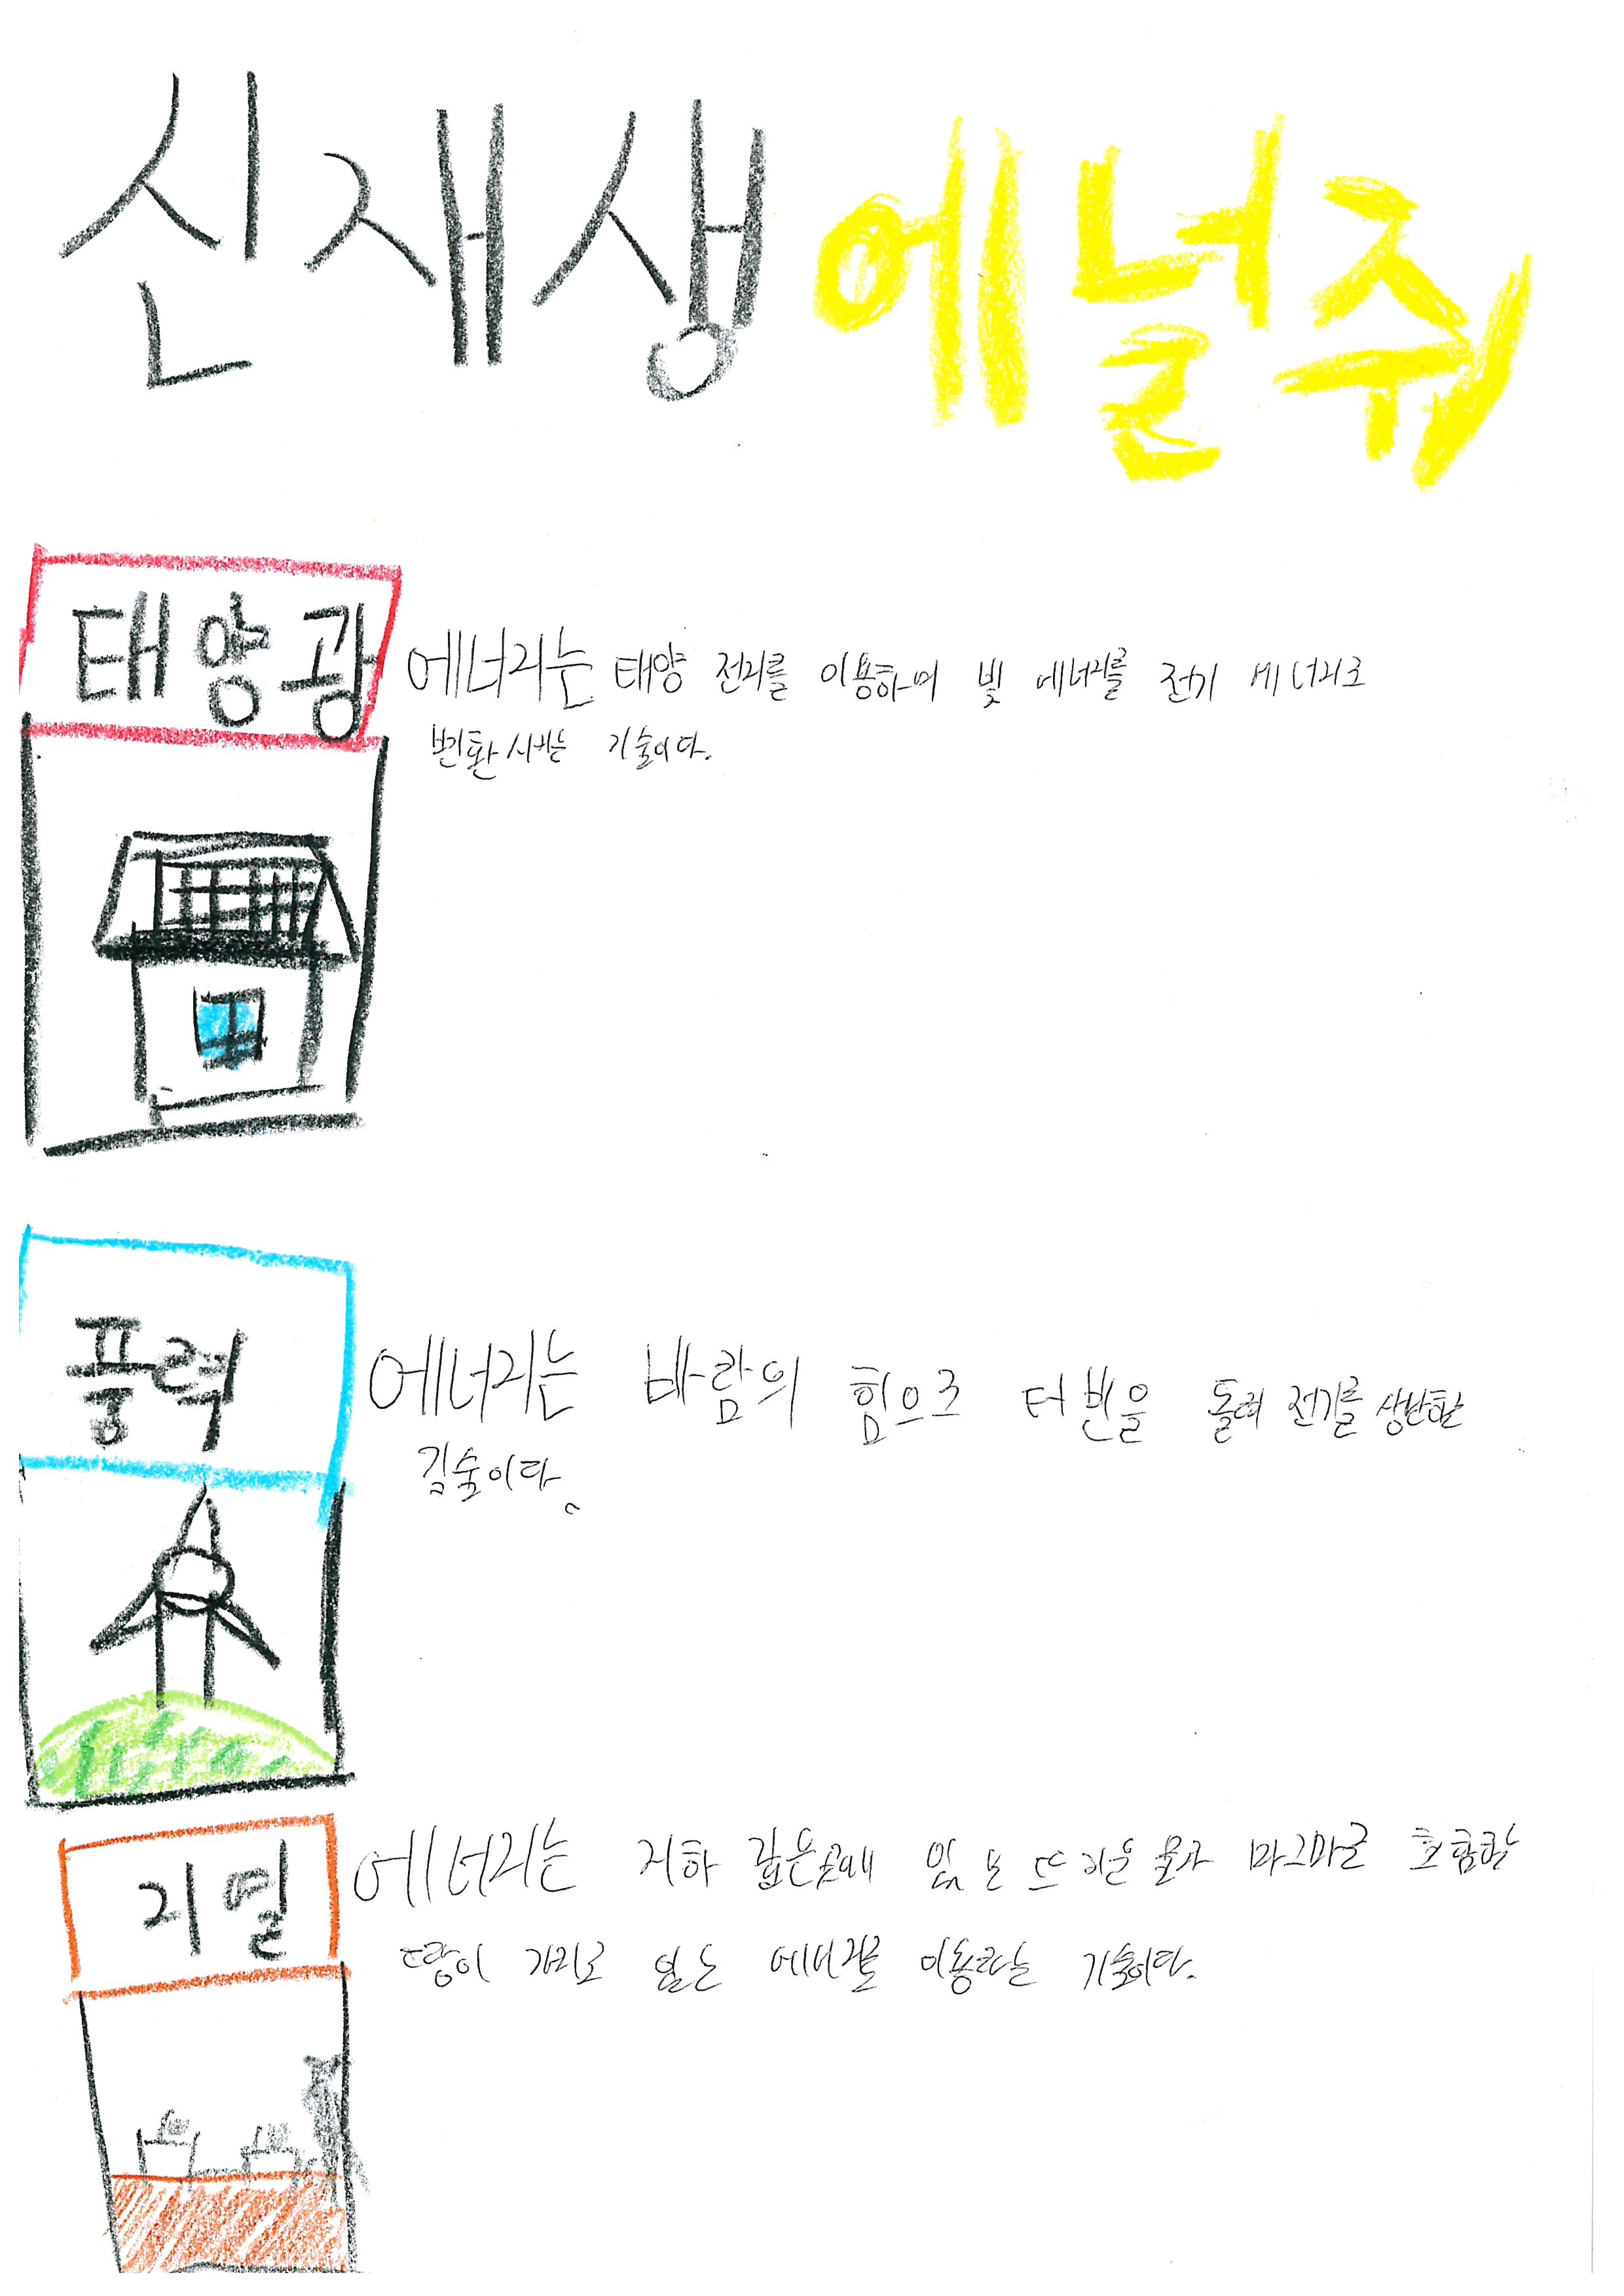 신재생 에널줘
태양광 에너지는 태양 전지를 이용하여 빛 에너지를 전기 에너지로
변환시키는 기술이다.
풍력 에너지는 바람의 힘으로 터빈을 돌려 전기를 생산한
기술이다.
지열 에너지는 지하 깊은곳에 있는 뜨거운 물과 마그마를 포함한
땅이 가지고 있는 에너지를 이용하는 기술이다.